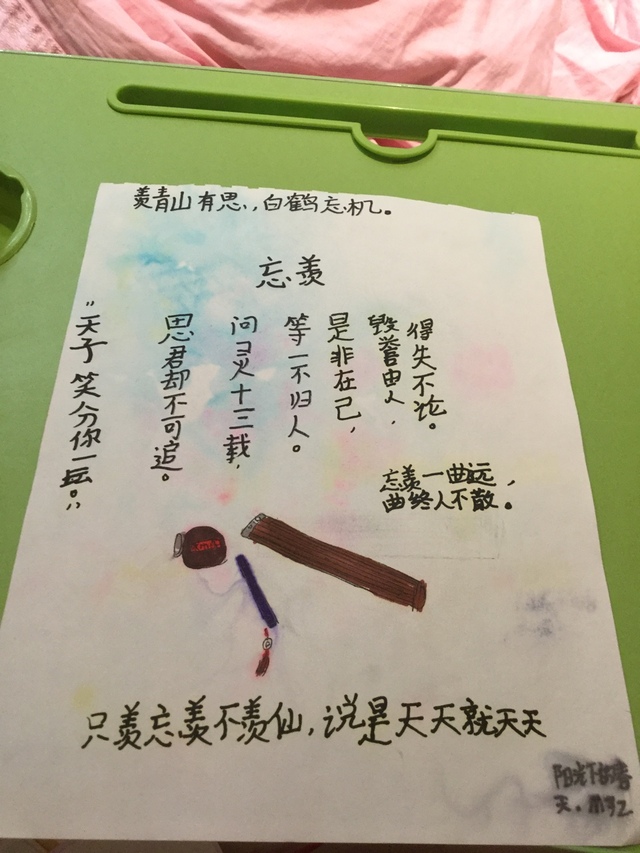 羡青山有思,,白鹤忘机。
忘羡
"天子笑分你一坛。"
思君却不可追。
问灵十三载,
等一不归人。
是非在己,
毁誉由人,
得失不论。
忘羡一曲远,
曲终人不散。
只羡忘羡不羡仙,说是天天就天天
阳光下的春
天.